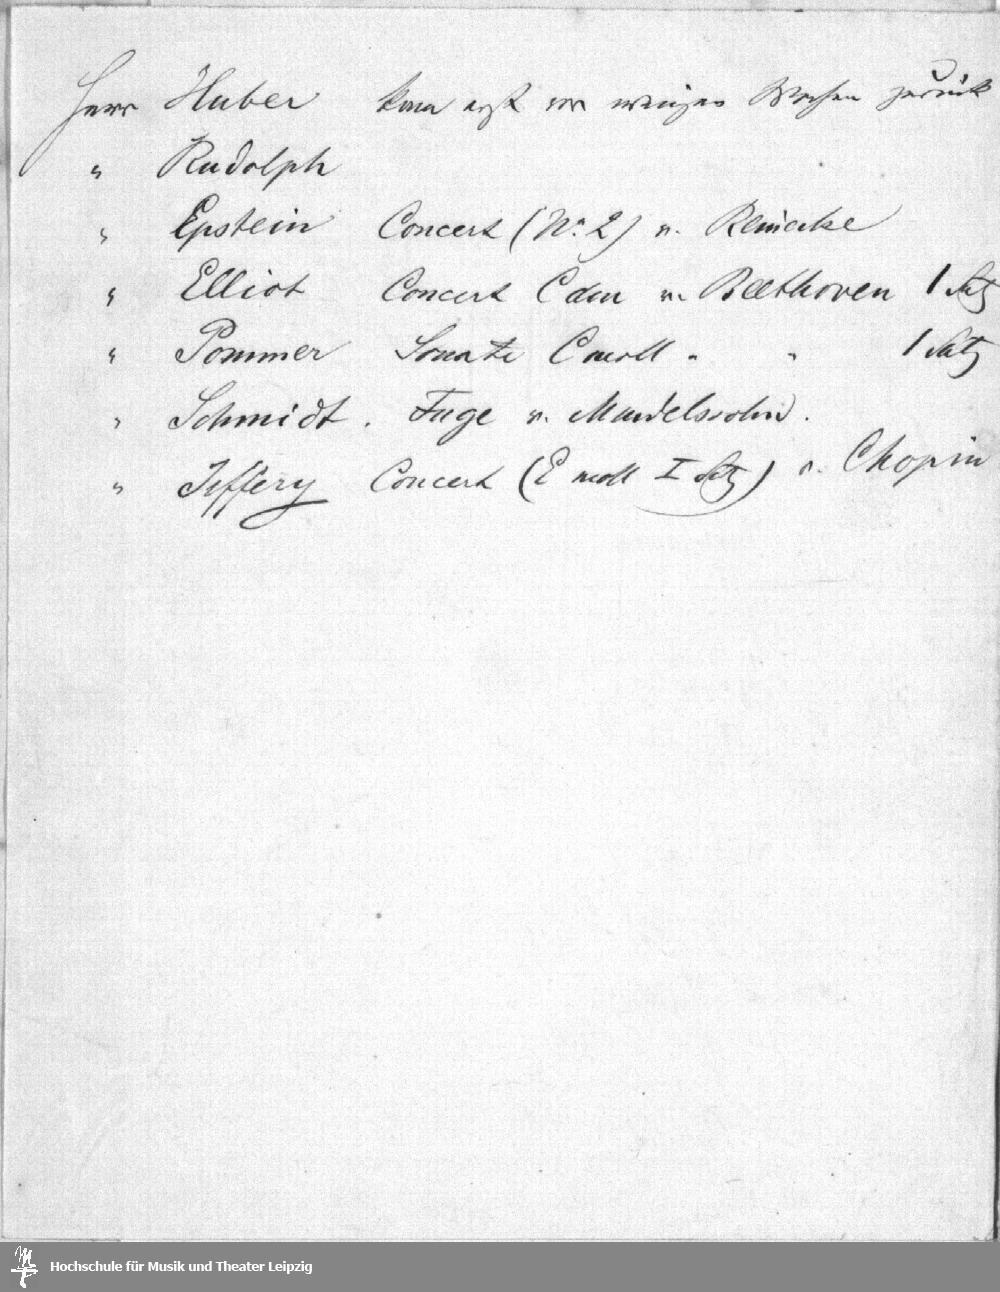 Herr Huber kam erst vor wenigen Wochen zurück
" Rudolph
" Epstein Concert (No. 2) v. Reinecke
" Elliot Concert C dur v. Beethoven 1 Satz
" Pommer Sonate C moll " " 1 Satz
" Schmidt. Fuge v. Mendelssohn.
" Jeffery Concert (E moll I Satz) v. Chopin
Hochschule für Musik und Theater Leipzig